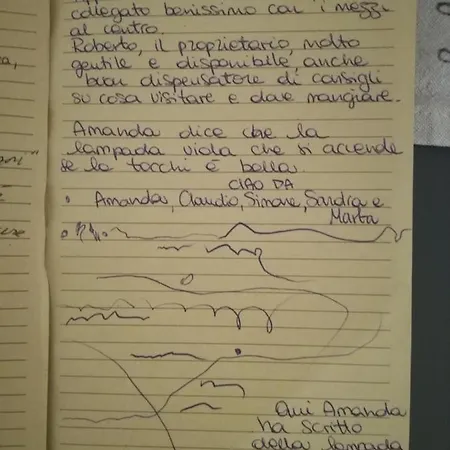 collegato benissimo con i mezzi
al centro.
Roberto, il proprietario, molto
gentile e disponibile, anche
buon dispensatore di consigli
su cosa visitare e dove mangiare.
Amanda dice che la
lampada viola che si accende
se la tocchi è bella.
CIAO DA
Amanda, Claudio, Simone, Sandra e
Marta
Qui Amanda
ha scritto
della lampada